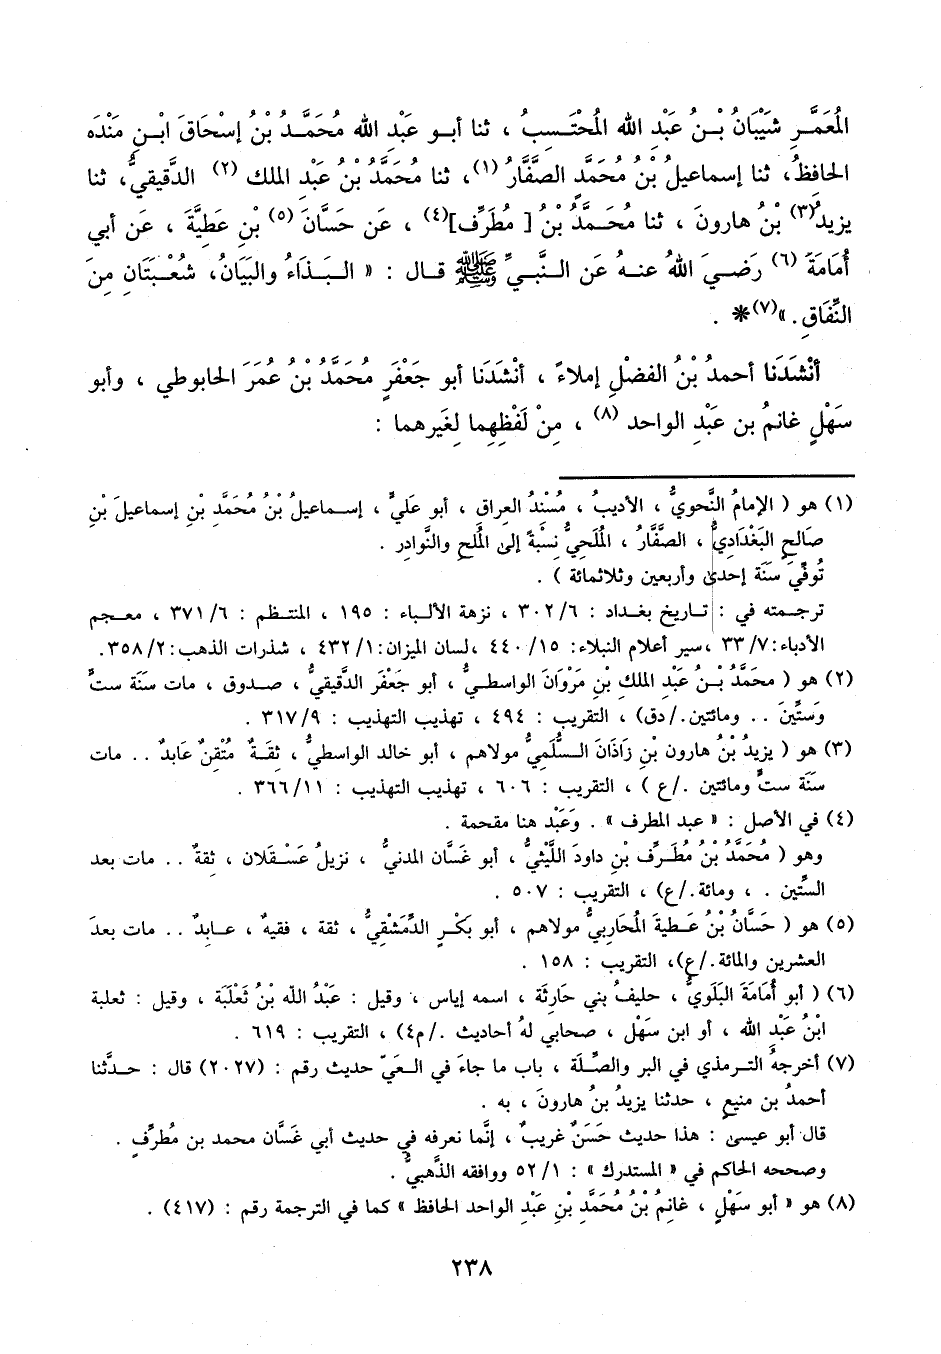 المُعَمَّرِ شَيْبَانُ بْـنُ عَبْدِ الله المُحْتَـسِبُ ، ثنا أبـو عَبْدِ الله مُحَمَّـدُ بْـنُ إِسْحَاقَ ابْـنِ مَنْدَه
الحَافِظُ، ثنا إسماعيلُ بْنُ مُحَمَّدٍ الصفَّارُ (١)، ثنا مُحَمَّدُ بْنُ عَبْدِ الملك (٢) الدَّقيقيُّ، ثنا
يزيدُ(٣) بْنُ هارونَ ، ثنا مُحَـمَّدُ بْنُ [ مُطَرِّف](٤) ، عَن حَسَّانَ (٥) بْنِ عَطِيَّةَ ، عَن أبي
أُمَامَةَ (٦) رَضـيَ اللهُ عنـهُ عَن الـنَّبـيِّ ﷺ قـال : « الـبَـذَاءُ والبَيَانُ، شُعْـبَتَانِ مِنَ
النِّفَاقِ. »(٧)* .
أَنْشَدَنَا أحمدُ بْنُ الفضْلِ إملاءً ، أنْشَدَنَا أبو جَعْفَرٍ مُحَمَّدُ بْنُ عُمَرَ الحابوطي ، وأبو
سَهْلٍ غانمُ بن عَبْدِ الواحد (٨) ، مِنْ لَفْظِهِما لِغَيرهما :
(١) هو ( الإمامُ النَّحويُّ ، الأديبُ ، مُسْنِدُ العراقِ ، أبو عَليٍّ ، إسـماعيلُ بْنُ مُحَمَّدِ بْنِ إسماعيلَ بْنِ
صَالحِ البَغْدَاديُّ ، الصَّفَّارُ ، المُلَحِيُّ نِسْبَةً إلى المُلَحِ والنَّوادِرِ .
تُوفِّيَ سَنَةَ إحدى وأربعين وثلاثمائة ) .
ترجـمته في : تـاريخ بغـداد : ٣٠٢/٦ ، نزهة الألبـاء : ١٩٥ ، المنتـظم : ٣٧١/٦ ، معـجم
الأدباء: ٣٣/٧ ،سير أعلام النبلاء: ٤٤٠/١٥ ،لسان الميزان: ٤٣٢/١ ، شذرات الذهب: ٣٥٨/٢.
(٢) هو ( محمَّدُ بْـنُ عَبْدِ الملكِ بْنِ مَرْوَانَ الواسطـيُّ ، أبو جعْفَرَ الدَّقيقيُّ ، صـدوق ، مات سَنَةَ ستٍّ
وَستِّينَ . . ومائتين./دق) ، التقريب : ٤٩٤ ، تهذيب التهذيب : ٣١٧/٩ .
(٣) هو ( يزيدُ بْنُ هارون بْنِ زَاذَانَ السُّلَمِيُّ مولاهم ، أبو خالد الواسطيُّ ، ثقـةٌ مُتْقِنٌ عَابدٌ . . مات
سَنَة ستٍّ ومائتين ./ع ) ، التقريب : ٦٠٦ ، تهذيب التهذيب : ٣٦٦/١١ .
(٤) في الأصل : « عبد المطرف » . وَعَبْد هنا مقحمة .
وهو ( مُحَمَّدُ بْنُ مُطَـرِّف بْنِ داودَ اللَّيْثيُّ ، أبو غَسَّان المدنيُّ ، نزيلُ عَسْـقَلان ، ثقةٌ . . مات بعد
الستِّين . . ومائة./ع) ، التقريب : ٥٠٧ .
(٥) هو ( حَسَّانُ بْنُ عَـطيةَ المُحَاربيُّ مولاهم ، أبو بَكْـرٍ الدِّمَشْقيُّ ، ثقة ، فقيهٌ ، عـابدٌ . . مات بعدَ
العشرين والمائة./ع)، التقريب : ١٥٨ .
(٦) ( أبو أُمَامَةَ البَلَويُّ ، حليفُ بني حَارثَة ، اسمه إياس ، وقيل : عَبْدُ الله بْنُ ثَعْلَبَة ، وقيل : ثعلبة
ابْنُ عَبْدِ الله ، أو ابن سَهْل ، صحابي لهُ أحاديث ./م٤) ، التقريب : ٦١٩ .
(٧) أخرجهُ التـرمذي في البر والصِّـلَة ، باب ما جاءَ في العَيّ حديث رقم : (٢٠٢٧) قال : حـدَّثنا
أحمدُ بن منيعٍ ، حدثنا يزيدُ بنُ هارونَ ، به .
قال أبو عيسى : هذا حديث حَسَنٌ غريبٌ ، إنَّما نعرفه في حديث أبي غَسَّان محمد بن مُطرِّفٍ .
وصححه الحاكم في « المستدرك » : ٥٢/١ ووافقه الذَّهبيُّ .
(٨) هو « أبو سَهْلٍ ، غانِمُ بْنُ مُحَمَّدِ بْنِ عَبْدِ الواحد الحافظ » كما في الترجمة رقم : (٤١٧) .
٢٣٨